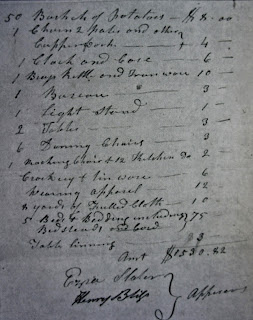 50 Bushels of Potatoes — $8.00
1 Churn 2 pales and other
Copper Work — 4 —
1 Clock and Case — 6 —
1 Brass Kettle and Iron ware 10 —
1 Bureau 3 —
1 Light Stand 1 —
2 Tables — 3 —
6 Dining Chairs 3
1 Rocking Chair & 12 Kitchen Do 2 —
Crockery & tin ware — 6 —
Wearing apparel 12
8 yards of Fulled Cloth — 10
5 Beds & Bedding including 75
Bedsteads and Cord
Table linning 3
Amt $1530.82
Ezra Slater
Henry Bliss